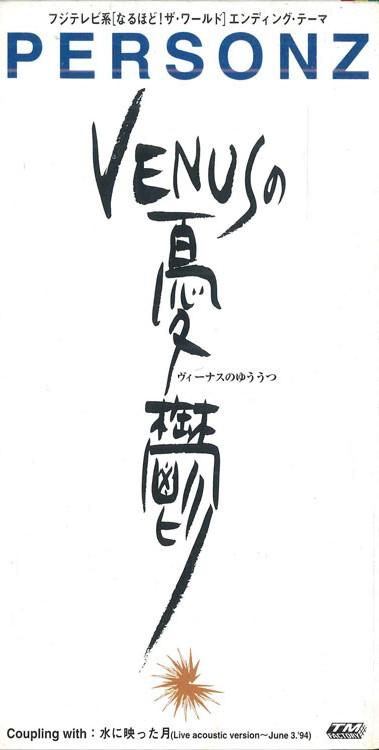 フジテレビ系[なるほど!ザ・ワールド]エンディング・テーマ
PERSONZ
VENUSの
憂
鬱
ヴィーナスのゆううつ
Coupling with：水に映った月(Live acoustic version〜June 3.'94)
TM
FACTORY